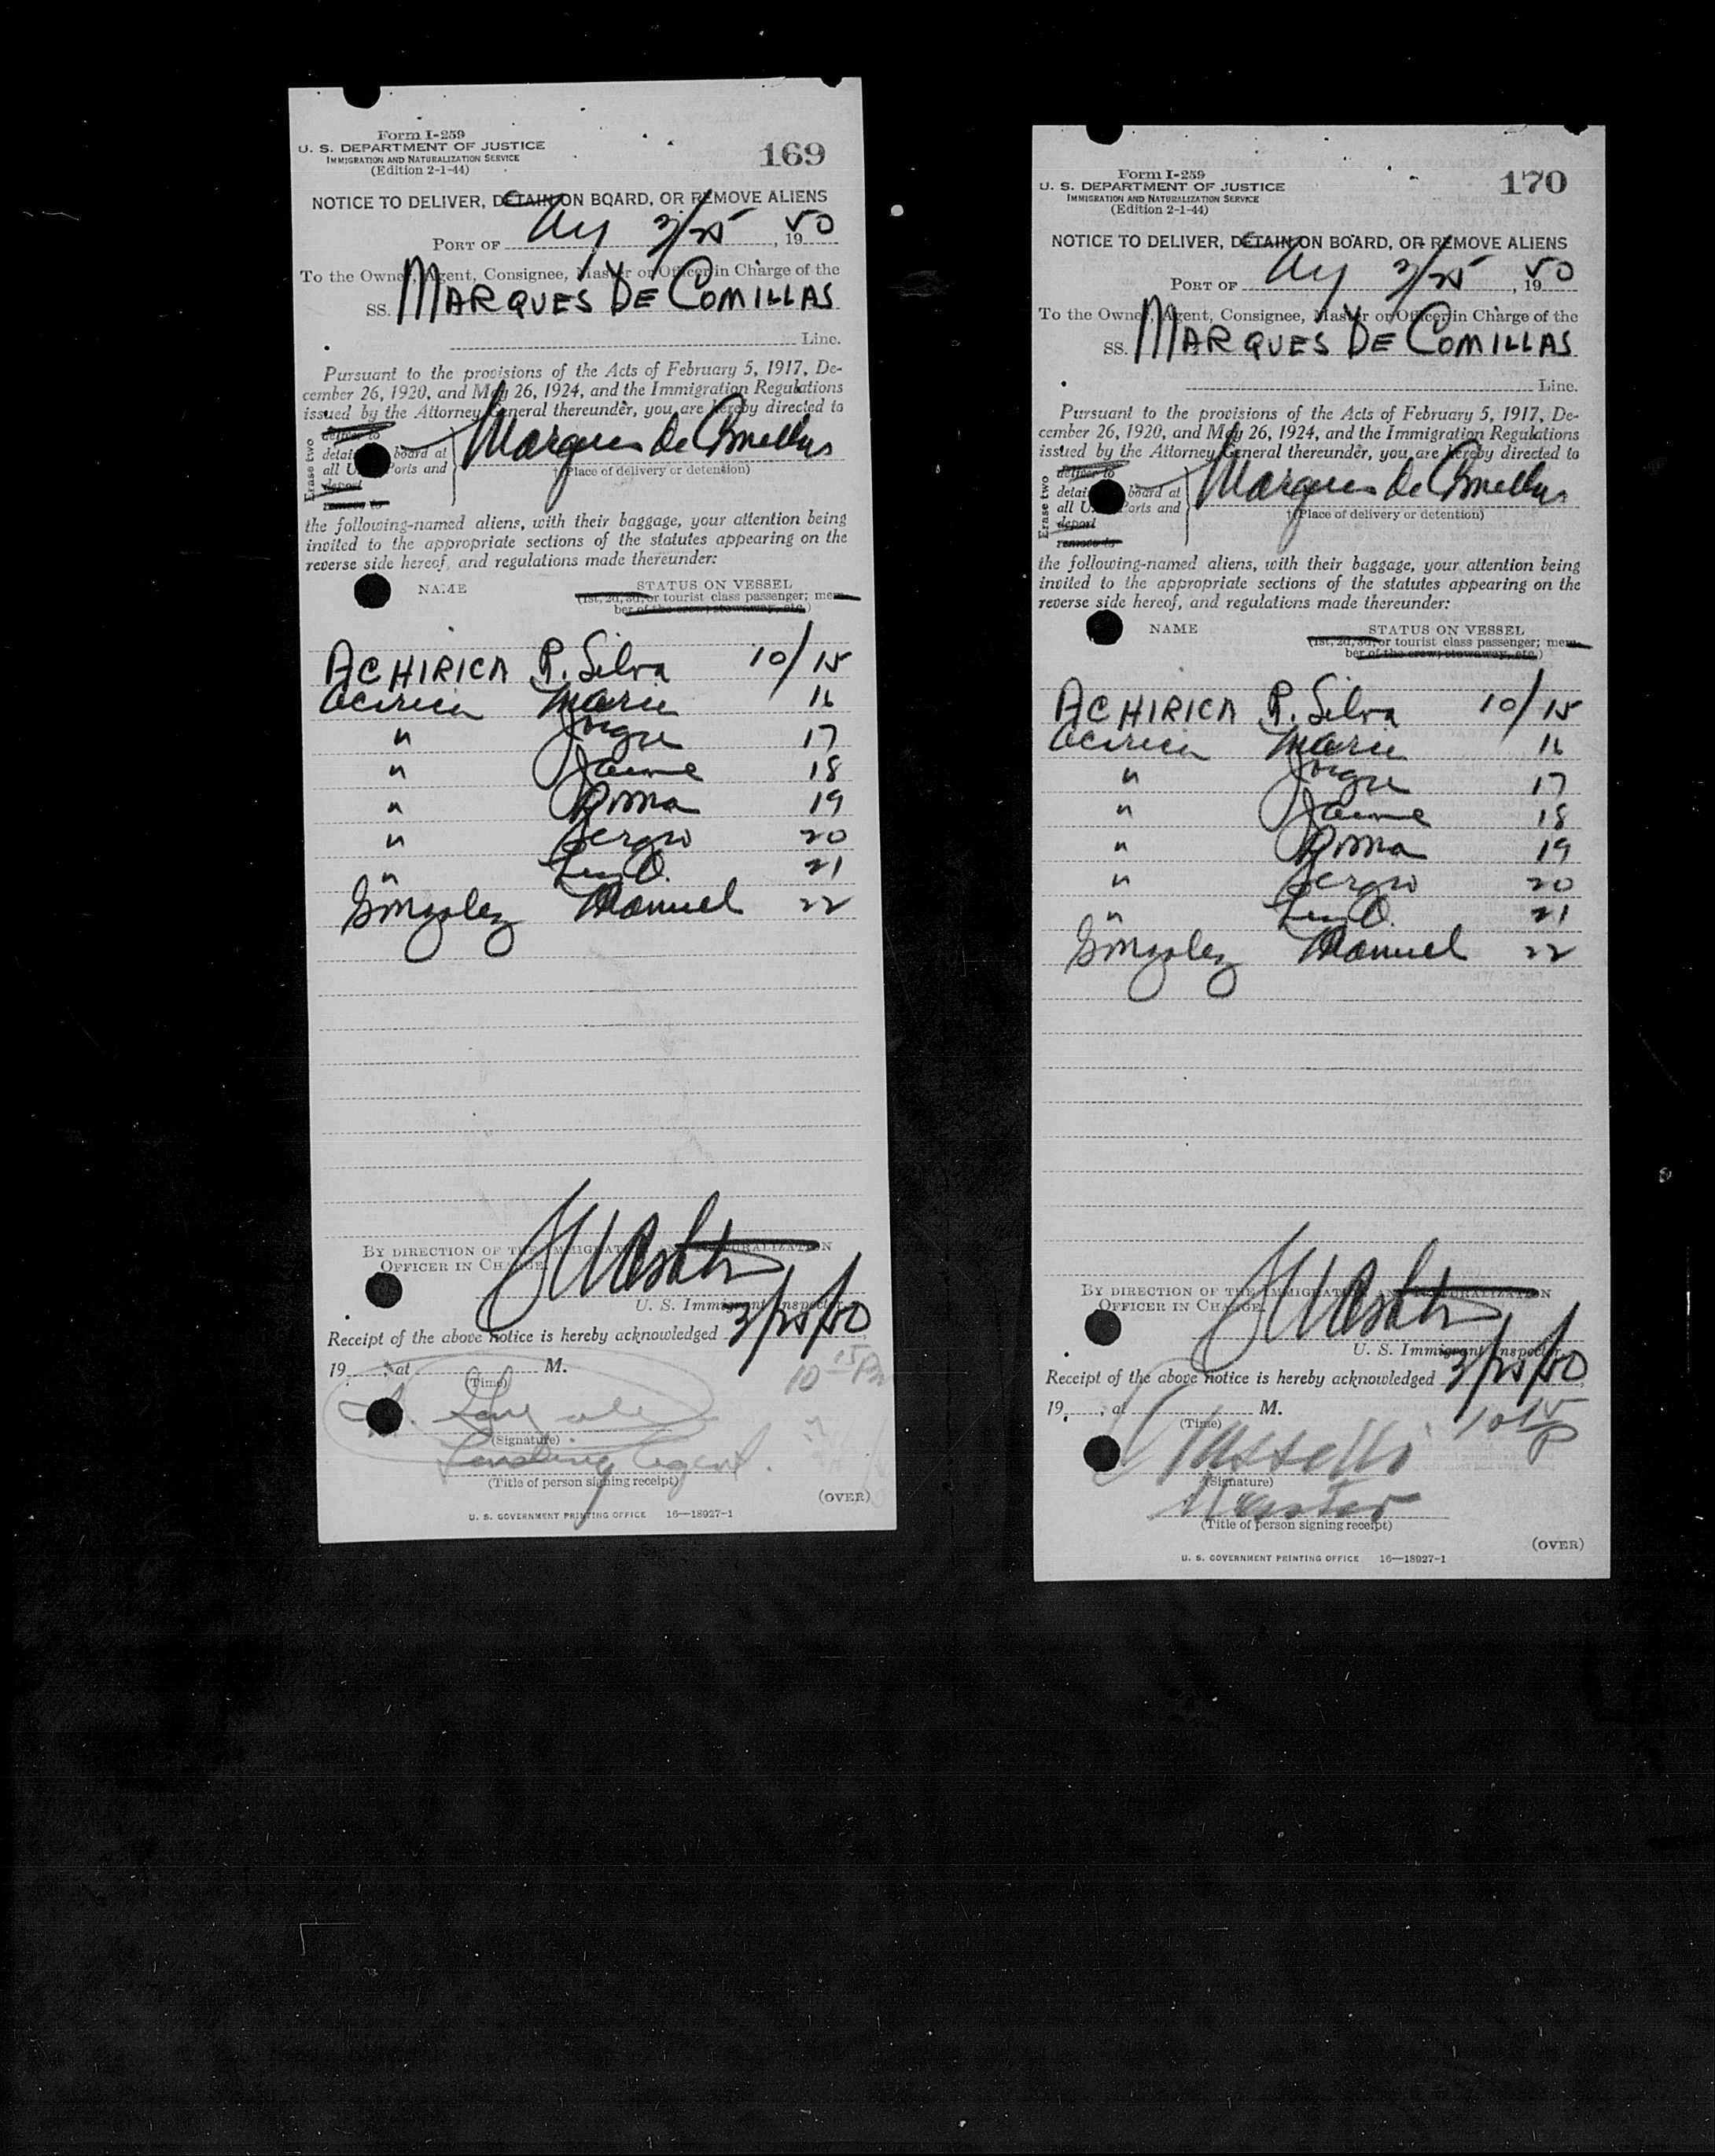 Form I-259
U. S. DEPARTMENT OF JUSTICE
IMMIGRATION AND NATURALIZATION SERVICE
(Edition 2-1-44)
169
NOTICE TO DELIVER, DETAIN ON BOARD, OR REMOVE ALIENS
PORT OF NY 3/25, 1950
To the Owner, Agent, Consignee, Master or Officer in Charge of the
SS. MARQUES DE COMILLAS
Line.
Pursuant to the provisions of the Acts of February 5, 1917, De-
cember 26, 1920, and May 26, 1924, and the Immigration Regulations
issued by the Attorney General thereunder, you are hereby directed to
Erase two
deliver to
detain board at
all U. Ports and
deport
remove to
Marques de Comillas
†(Place of delivery or detention)
the following-named aliens, with their baggage, your attention being
invited to the appropriate sections of the statutes appearing on the
reverse side hereof, and regulations made thereunder:
NAME STATUS ON VESSEL
(1st, 2d, 3d, or tourist class passenger; mem-
ber of the crew; stowaway, etc.)
ACHIRICA P. Silva 10/15
Maria 16
" Jorge 17
" Jaime 18
" 19
" Sergio 20
" 21
Gonzalez Manuel 22
BY DIRECTION OF THE IMMIGRATION AND NATURALIZATION
OFFICER IN CHARGE.
U. S. Immigrant Inspector.
Receipt of the above notice is hereby acknowledged 3/25/50,
19 , at M. 10 15 Pm
(Time)
(Signature)
Landing Agent.
(Title of person signing receipt)
(OVER)
U. S. GOVERNMENT PRINTING OFFICE 16—18027-1
Form I-259
U. S. DEPARTMENT OF JUSTICE
IMMIGRATION AND NATURALIZATION SERVICE
(Edition 2-1-44)
170
NOTICE TO DELIVER, DETAIN ON BOARD, OR REMOVE ALIENS
PORT OF NY 3/25, 1950
To the Owner, Agent, Consignee, Master or Officer in Charge of the
SS. MARQUES DE COMILLAS
Line.
Pursuant to the provisions of the Acts of February 5, 1917, De-
cember 26, 1920, and May 26, 1924, and the Immigration Regulations
issued by the Attorney General thereunder, you are hereby directed to
Erase two
deliver to
detain board at
all U. Ports and
deport
remove to
Marques de Comillas
†(Place of delivery or detention)
the following-named aliens, with their baggage, your attention being
invited to the appropriate sections of the statutes appearing on the
reverse side hereof, and regulations made thereunder:
NAME STATUS ON VESSEL
(1st, 2d, 3d, or tourist class passenger; mem-
ber of the crew; stowaway, etc.)
ACHIRICA P. Silva 10/15
Maria 16
" Jorge 17
" Jaime 18
" 19
" Sergio 20
" 21
Gonzalez Manuel 22
BY DIRECTION OF THE IMMIGRATION AND NATURALIZATION
OFFICER IN CHARGE.
U. S. Immigrant Inspector.
Receipt of the above notice is hereby acknowledged 3/25/50,
19 , at M. 10 15 P
(Time)
(Signature)
Master
(Title of person signing receipt)
(OVER)
U. S. GOVERNMENT PRINTING OFFICE 16—18027-1